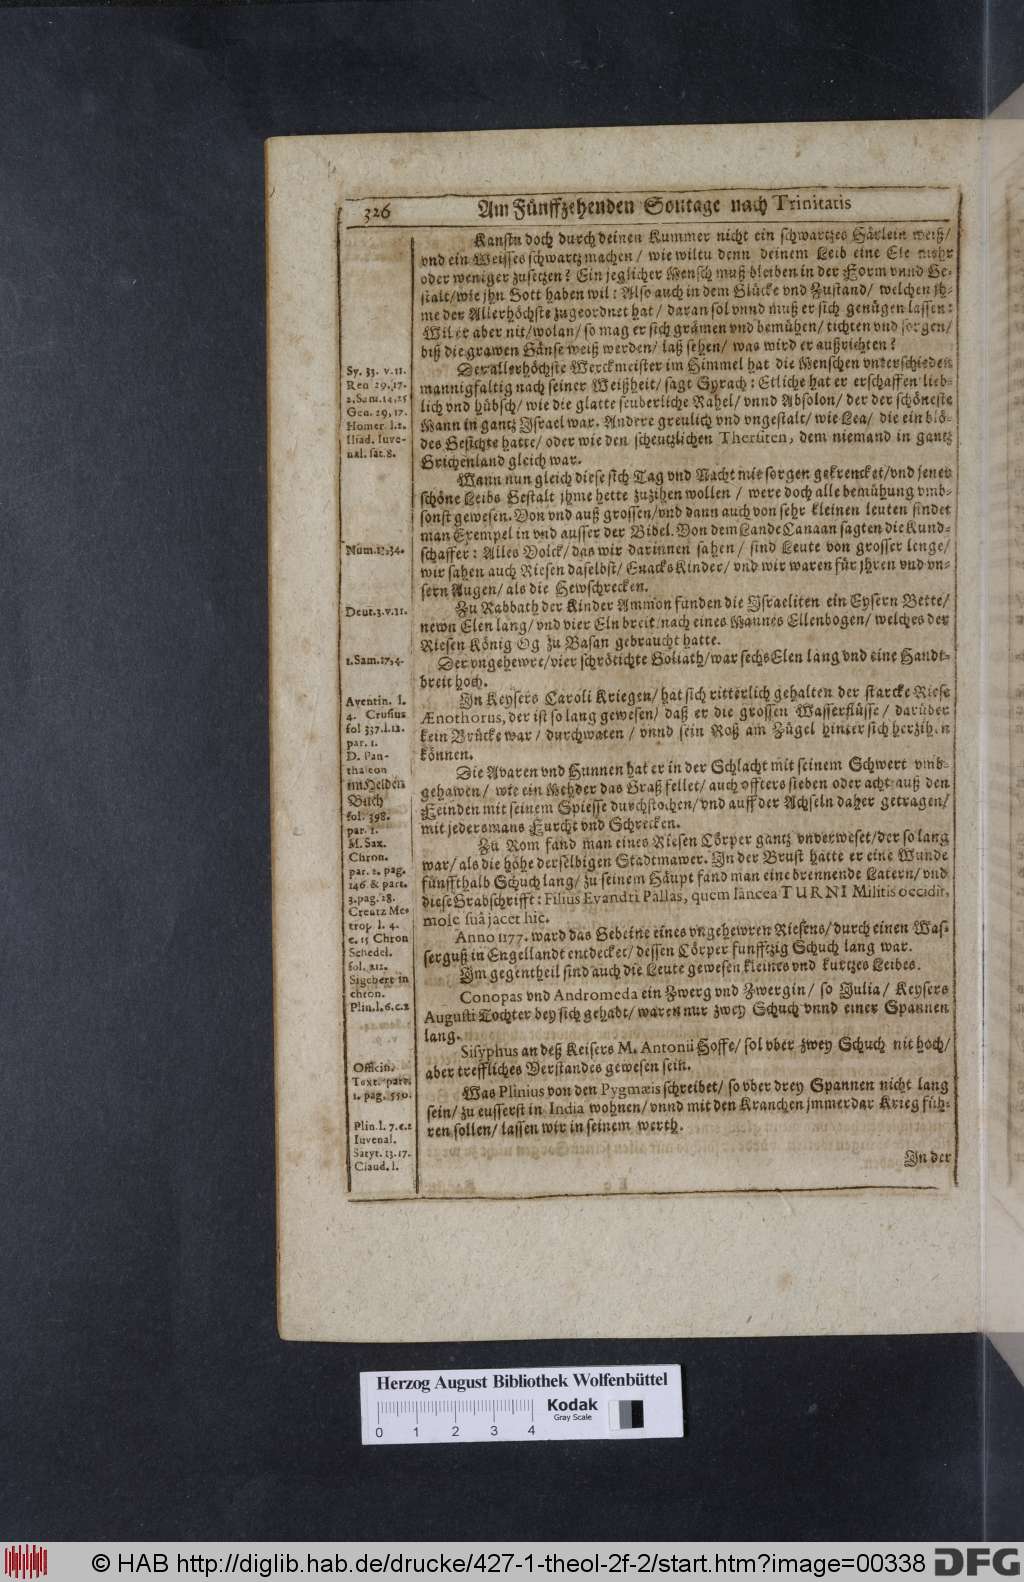 326
Am Fünffzehenden Sontage nach Trinitatis
Kanstu doch durch deinen Kummer nicht ein schwartzes Härlein weiß/
vnd ein Weisses schwartz machen/ wie wiltu denn deinem Leib eine Ele mehr
oder weniger zusetzen? Ein jeglicher Mensch muß bleiben in der Form vnnd Ge-
stalt/wie jhn Gott haben wil: Also auch in dem Glücke vnd Zustand/ welchen jh-
me der Allerhöchste zugeordnet hat/ daran sol vnnd muß er sich genügen lassen:
Wil er aber nit/wolan/ so mag er sich grämen vnd bemühen/ tichten vnd sorgen/
biß die grawen Gänse weiß werden/ laß sehen/ was wird er außrichten?
Der allerhöchste Werckmeister im Himmel hat die Menschen vnterschieden
mannigfaltig nach seiner Weißheit/ sagt Syrach: Etliche hat er erschaffen lieb-
lich vnd hübsch/ wie die glatte seuberliche Rahel/ vnnd Absolon/ der der schöneste
Mann in gantz Israel war. Andere greulich vnd vngestalt/ wie Lea/ die ein blö-
des Gesichte hatte/ oder wie den scheutzlichen Thersiten, dem niemand in gantz
Grichenland gleich war.
Wann nun gleich diese sich Tag vnd Nacht mit sorgen gekrencket/vnd jener
schöne Leibs Gestalt jhme hette zuzihen wollen/ were doch alle bemühung vmb-
sonst gewesen. Von vnd auß grossen/vnd dann auch von sehr kleinen leuten findet
man Exempel in vnd ausser der Bibel. Von dem Lande Canaan sagten die Kund-
schaffer: Alles Volck/das wir darinnen sahen/ sind Leute von grosser lenge/
wir sahen auch Riesen daselbst/ Enacks Kinder/ vnd wir waren für jhren vnd vn-
sern Augen/ als die Hewschrecken.
Zu Rabbath der Kinder Ammon funden die Israeliten ein Eysern Bette/
newn Elen lang/ vnd vier Eln breit/nach eines Mannes Ellenbogen/ welches der
Riesen König Og zu Basan gebraucht hatte.
Der vngehewre/vier schrötichte Goliath/war sechs Elen lang vnd eine Handt-
breit hoch.
In Keysers Caroli Kriegen/ hat sich ritterlich gehalten der starcke Riese
Ænothorus, der ist so lang gewesen/ daß er die grossen Wasserflüsse/ darüber
kein Brücke war/ durchwaten/ vnnd sein Roß am Zügel hinter sich herzihen
können.
Die Avaren vnd Hunnen hat er in der Schlacht mit seinem Schwert vmb-
gehawen/ wie ein Mehder das Graß fellet/ auch offters sieben oder acht auß den
Feinden mit seinem Spiesse durchstochen/ vnd auff der Achseln daher getragen/
mit jedersmans Furcht vnd Schrecken.
Zu Rom fand man eines Riesen Cörper gantz vnverweset/der so lang
war/ als die höhe derselbigen Stadtmawer. In der Brust hatte er eine Wunde
fünffthalb Schuch lang/ zu seinem Häupt fand man eine brennende Latern/ vnd
diese Grabschrifft: Filius Evandri Pallas, quem lancea TURNI Militis occidit,
mole suâ jacet hic.
Anno 1177. ward das Gebeine eines vngehewren Riesens/durch einen Was-
serguß in Engellandt entdecket/ dessen Cörper funffzig Schuch lang war.
Im gegentheil sind auch die Leute gewesen kleines vnd kurtzes Leibes.
Conopas vnd Andromeda ein Zwerg vnd Zwergin/ so Julia/ Keysers
Augusti Tochter bey sich gehabt/ waren nur zwey Schuch vnnd einer Spannen
lang.
Sisyphus an deß Keisers M. Antonii Hoffe/ sol vber zwey Schuch nit hoch/
aber treffliches Verstandes gewesen sein.
Was Plinius von den Pygmæis schreibet/ so vber drey Spannen nicht lang
sein/ zu eusserst in India wohnen/ vnnd mit den Kranchen jmmerdar Krieg füh-
ren sollen/ lassen wir in seinem werth.
In der
Sy. 33. v.11.
Ren 29.17.
2.Sam.14.25
Gen. 29, 17.
Homer l.2.
Iliad. Iuve-
nal. sat.8.
Num.13.34.
Deut.3.v.11.
1.Sam.17.4.
Aventin. l.
4. Crusius
fol 337.l.12.
par. 1.
D. Pan-
thaleon
im Helden
Buch
fol. 398.
par. 1.
M. Sax.
Chron.
par. 2. pag.
146 & part.
3.pag.28.
Creutz Me-
trop l. 4.
c. 15 Chron
Schedel.
fol. 212.
Sigebert in
chron.
Plin.l.6.c.2
Officin.
Text. part.
1. pag. 550.
Plin l. 7.c.2
Iuvenal.
Satyr. 13.17.
Claud. l.
Herzog August Bibliothek Wolfenbüttel
0 1 2 3 4
Kodak
Gray Scale
© HAB http://diglib.hab.de/drucke/427-1-theol-2f-2/start.htm?image=00338
DFG